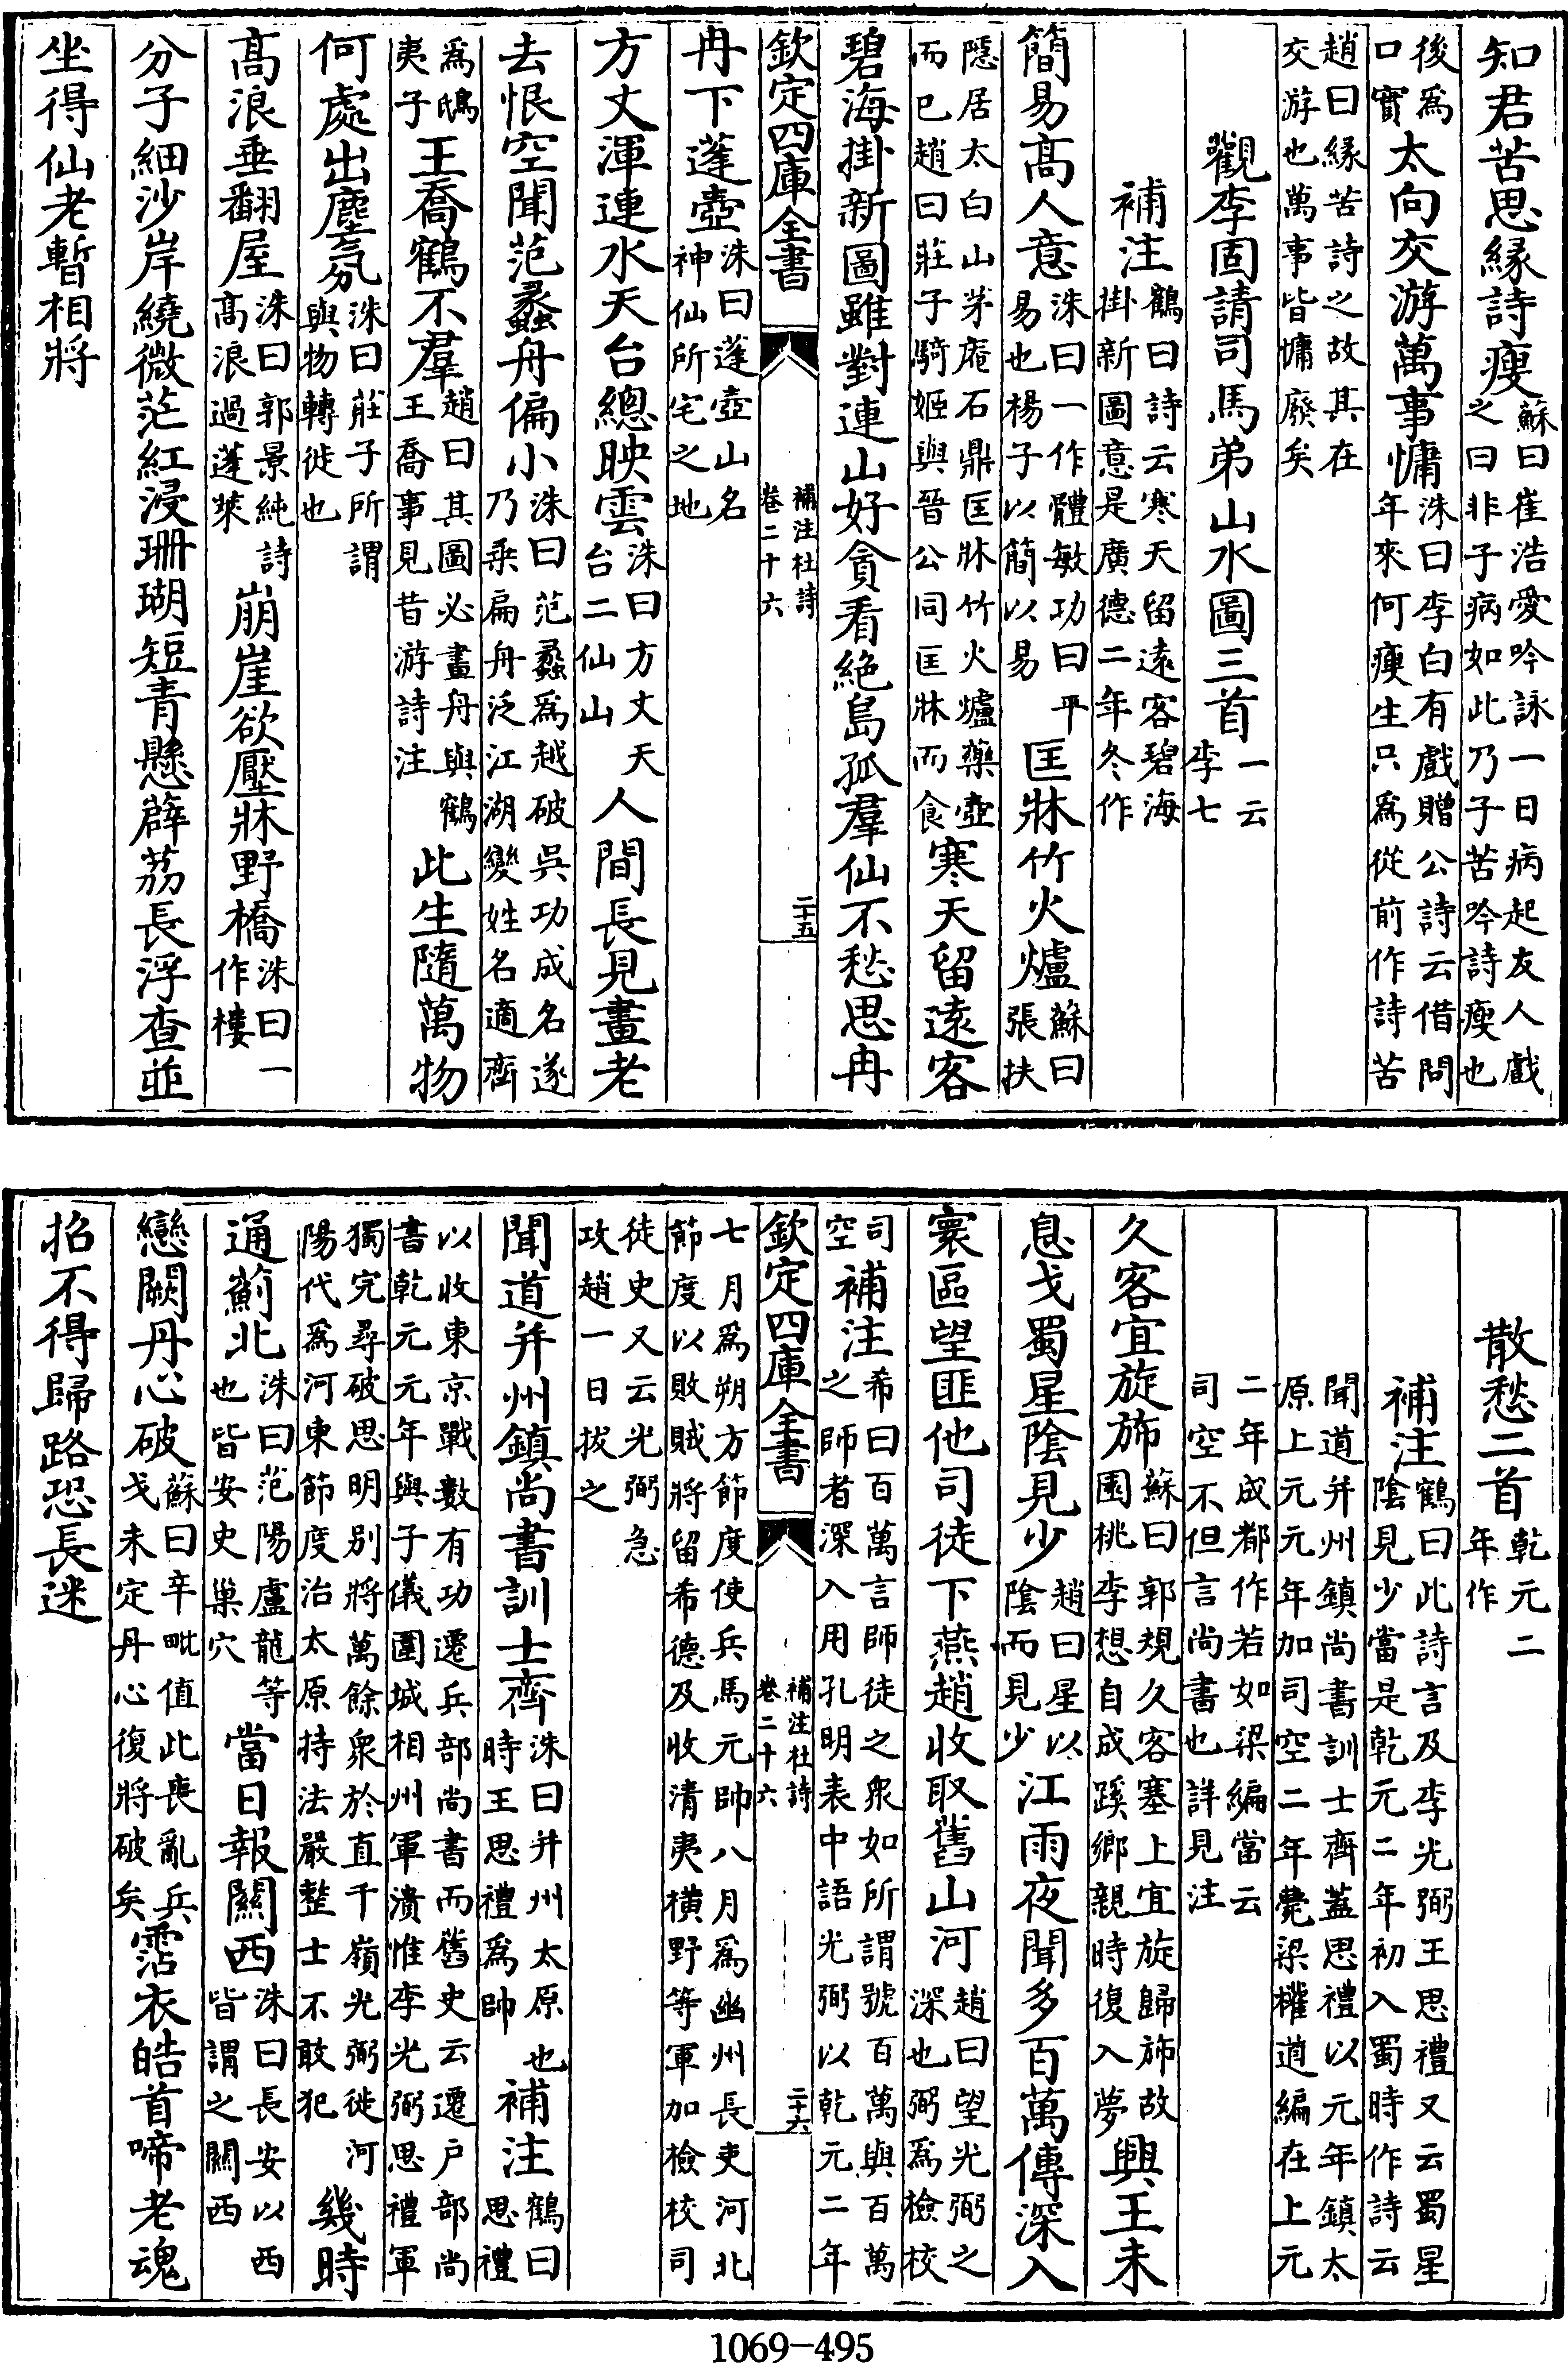 知君苦思縁詩瘦蘇曰崔浩愛吟詠一日病起友人戲之曰非子病如此乃子苦吟詩瘦也
後爲口實太向交游萬事慵洙曰李白有戲贈公詩云借問年來何瘦生只爲從前作詩苦
趙曰縁苦詩之故其在交游也萬事皆慵廢矣
觀李固請司馬弟山水圖三首一云李七
補注鶴曰詩云寒天留遠客碧海掛新圖意是廣德二年冬作
簡易髙人意洙曰一作體敏功曰平易也楊子以簡以易匡牀竹火爐蘇曰張扶
隱居太白山茅庵石鼎匡牀竹火爐藥壺而已趙曰莊子騎姬與晉公同匡牀而食寒天留遠客
碧海掛新圖雖對連山好貪看絶島孤羣仙不愁思冉
欽定四庫全書 補注杜詩卷二十六 二十五
冉下蓬壺洙曰蓬壺山名神仙所宅之地
方丈渾連水天台總映雲洙曰方丈天台二仙山人間長見畫老
去恨空聞范蠡舟偏小洙曰范蠡爲越破吳功成名遂乃乘扁舟泛江湖變姓名適齊
爲鴟夷子王喬鶴不羣趙曰其圖必畫舟與鶴王喬事見昔游詩注此生隨萬物
何處出塵氛洙曰莊子所謂與物轉徙也
髙浪垂翻屋洙曰郭景純詩髙浪過蓬萊崩崖欲壓牀野橋洙曰一作樓
分子細沙岸繞微茫紅浸珊瑚短青懸薜荔長浮查並
坐得仙老暫相將
散愁二首乾元二年作
補注鶴曰此詩言及李光弼王思禮又云蜀星陰見少當是乾元二年初入蜀時作詩云
聞道并州鎮尚書訓士齊蓋思禮以元年鎮太原上元元年加司空二年薨梁權道編在上元
二年成都作若如梁編當云司空不但言尚書也詳見注
久客宜旋斾蘇曰郭規久客塞上宜旋歸斾故園桃李想自成蹊鄉親時復入夢興王未
息戈蜀星陰見少趙曰星以陰而見少江雨夜聞多百萬傳深入
寰區望匪他司徒下燕趙收取舊山河趙曰望光弼之深也弼爲檢校
司空補注希曰百萬言師徒之衆如所謂號百萬與百萬之師者深入用孔明表中語光弼以乾元二年
欽定四庫全書 補注杜詩卷二十六 二十六
七月爲朔方節度使兵馬元帥八月爲幽州長吏河北節度以敗賊將留希德及收清夷横野等軍加檢校司
徒史又云光弼急攻趙一日拔之
聞道并州鎮尚書訓士齊洙曰并州太原也時王思禮爲帥補注鶴曰思禮
以收東京戰數有功遷兵部尚書而舊史云遷户部尚書乾元元年與子儀圍城相州軍潰惟李光弼思禮軍
獨完尋破思明别將萬餘衆於直千嶺光弼徙河陽代爲河東節度治太原持法嚴整士不敢犯幾時
通薊北洙曰范陽盧龍等也皆安史巢穴當日報關西洙曰長安以西皆謂之關西
戀闕丹心破蘇曰辛毗值此喪亂兵戈未定丹心復將破矣霑衣皓首啼老魂
招不得歸路恐長迷
1069-495